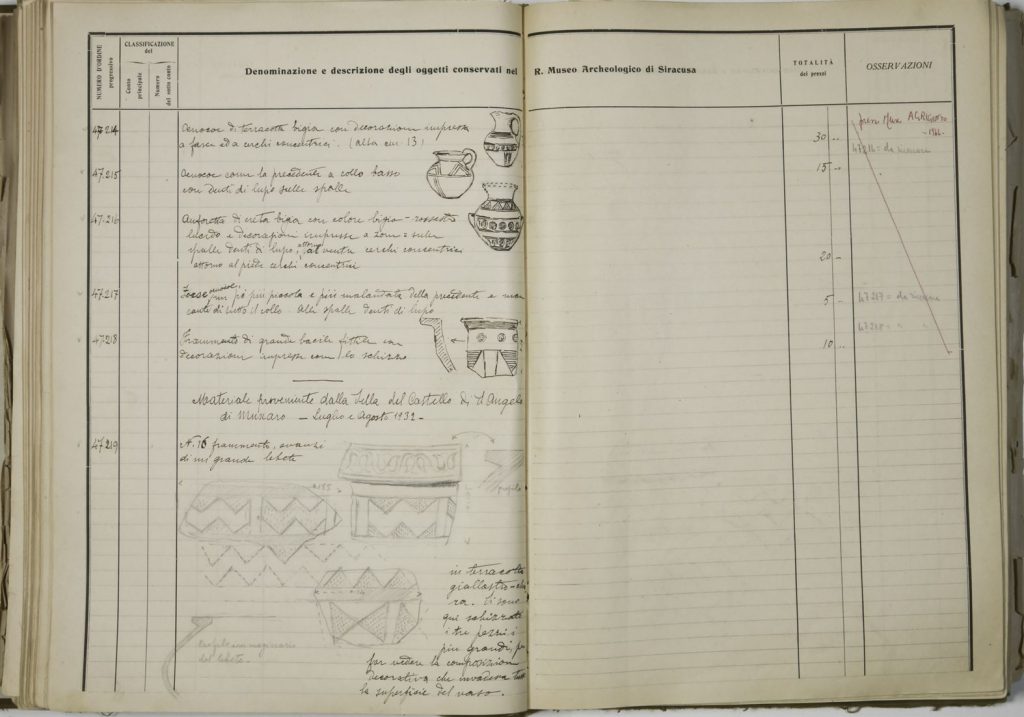 NUMERO D'ORDINE
progressivo
CLASSIFICAZIONE
del
Conto
principale
Numero
del sotto conto
Denominazione e descrizione degli oggetti conservati nel R. Museo Archeologico di Siracusa
TOTALITÀ
dei prezzi
OSSERVAZIONI
47.214
Oenocoe di terracotta bigia con decorazioni impresse
a fasce ed a cerchi concentrici. (alta cm. 13)
30
presso Museo AGRIGENTO
47214 = da
47.215
Oenocoe come la precedente a collo basso
con denti di lupo sulle spalle
15
47.216
Anforetta di creta bigia con colore bigio-rossastro
lucido e decorazioni impresse a zone = sulle
spalle denti di lupo, al ventre cerchi concentrici
attorno al piede cerchi concentrici
20
47.217
un pò più piccola e più malandata della precedente e man
cante di tutto il collo. Alle spalle denti di lupo
5
47217 = da
47.218
Frammento di grande bacile fittile con
decorazioni impresse come lo schizzo
10
47218 = " "
Materiale proveniente dalla vetta del Castello di S. Angelo
di Muxaro - Luglio e Agosto 1932 -
47.219
N. 16 frammenti, avanzi
di un grande lebete
profilo
in terracotta
giallastro-chia
ra. Vi sono
qui schizzati
i tre pezzi i
più grandi, per
far vedere la composizione
decorativa che invadeva tutta
la superficie del vaso.
Profilo immaginario
del lebete.